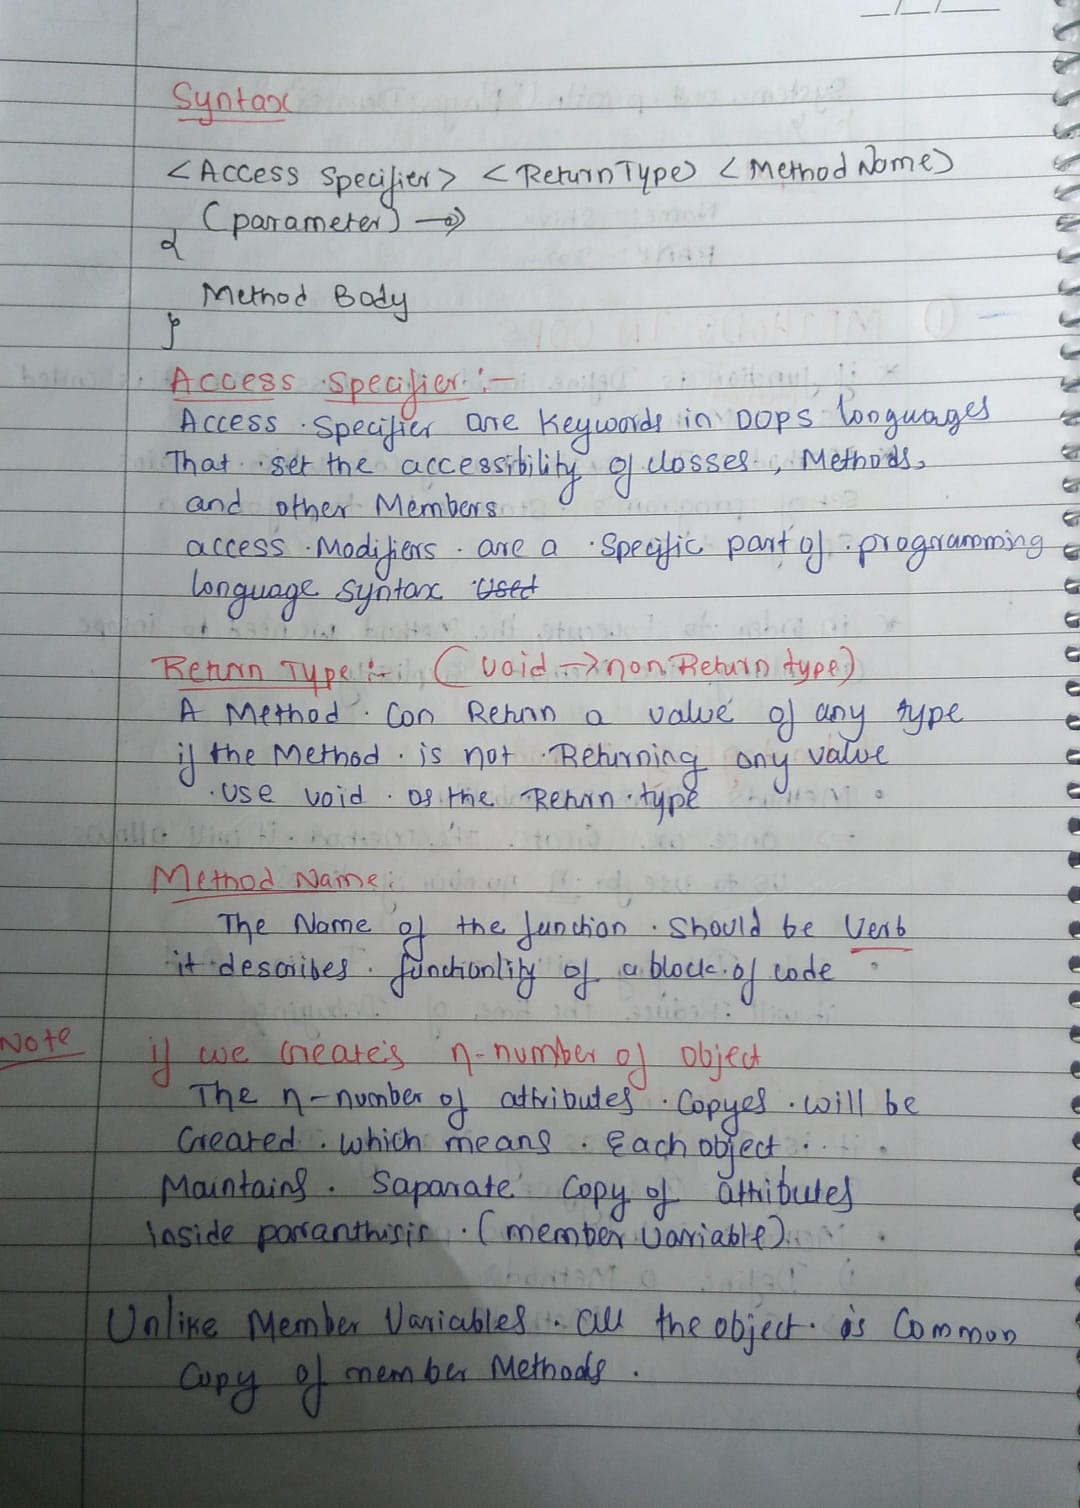 Syntax
<Access Specifier> <Return Type> <Method Name>
(parameter) →
{
Method Body
}
Access Specifier :-
Access Specifier are Keywords in OOPS languages
That set the accessibility of classes, Methods,
and other Members
access Modifiers are a Specific part of programming
language syntax used
Return Type :- (void → non Return type)
A Method can Return a value of any type
if the Method is not Returning any value
use void as the Return type
Method Name:
The Name of the function should be Verb
it describes functionlity of a block of code
Note
if we create's n-number of object
The n-number of attributes Copyes will be
Created which means Each object
Maintains Saparate Copy of attributes
inside paranthisis (member variable).
Unlike Member Variables all the object is Common
Copy of member Methods.